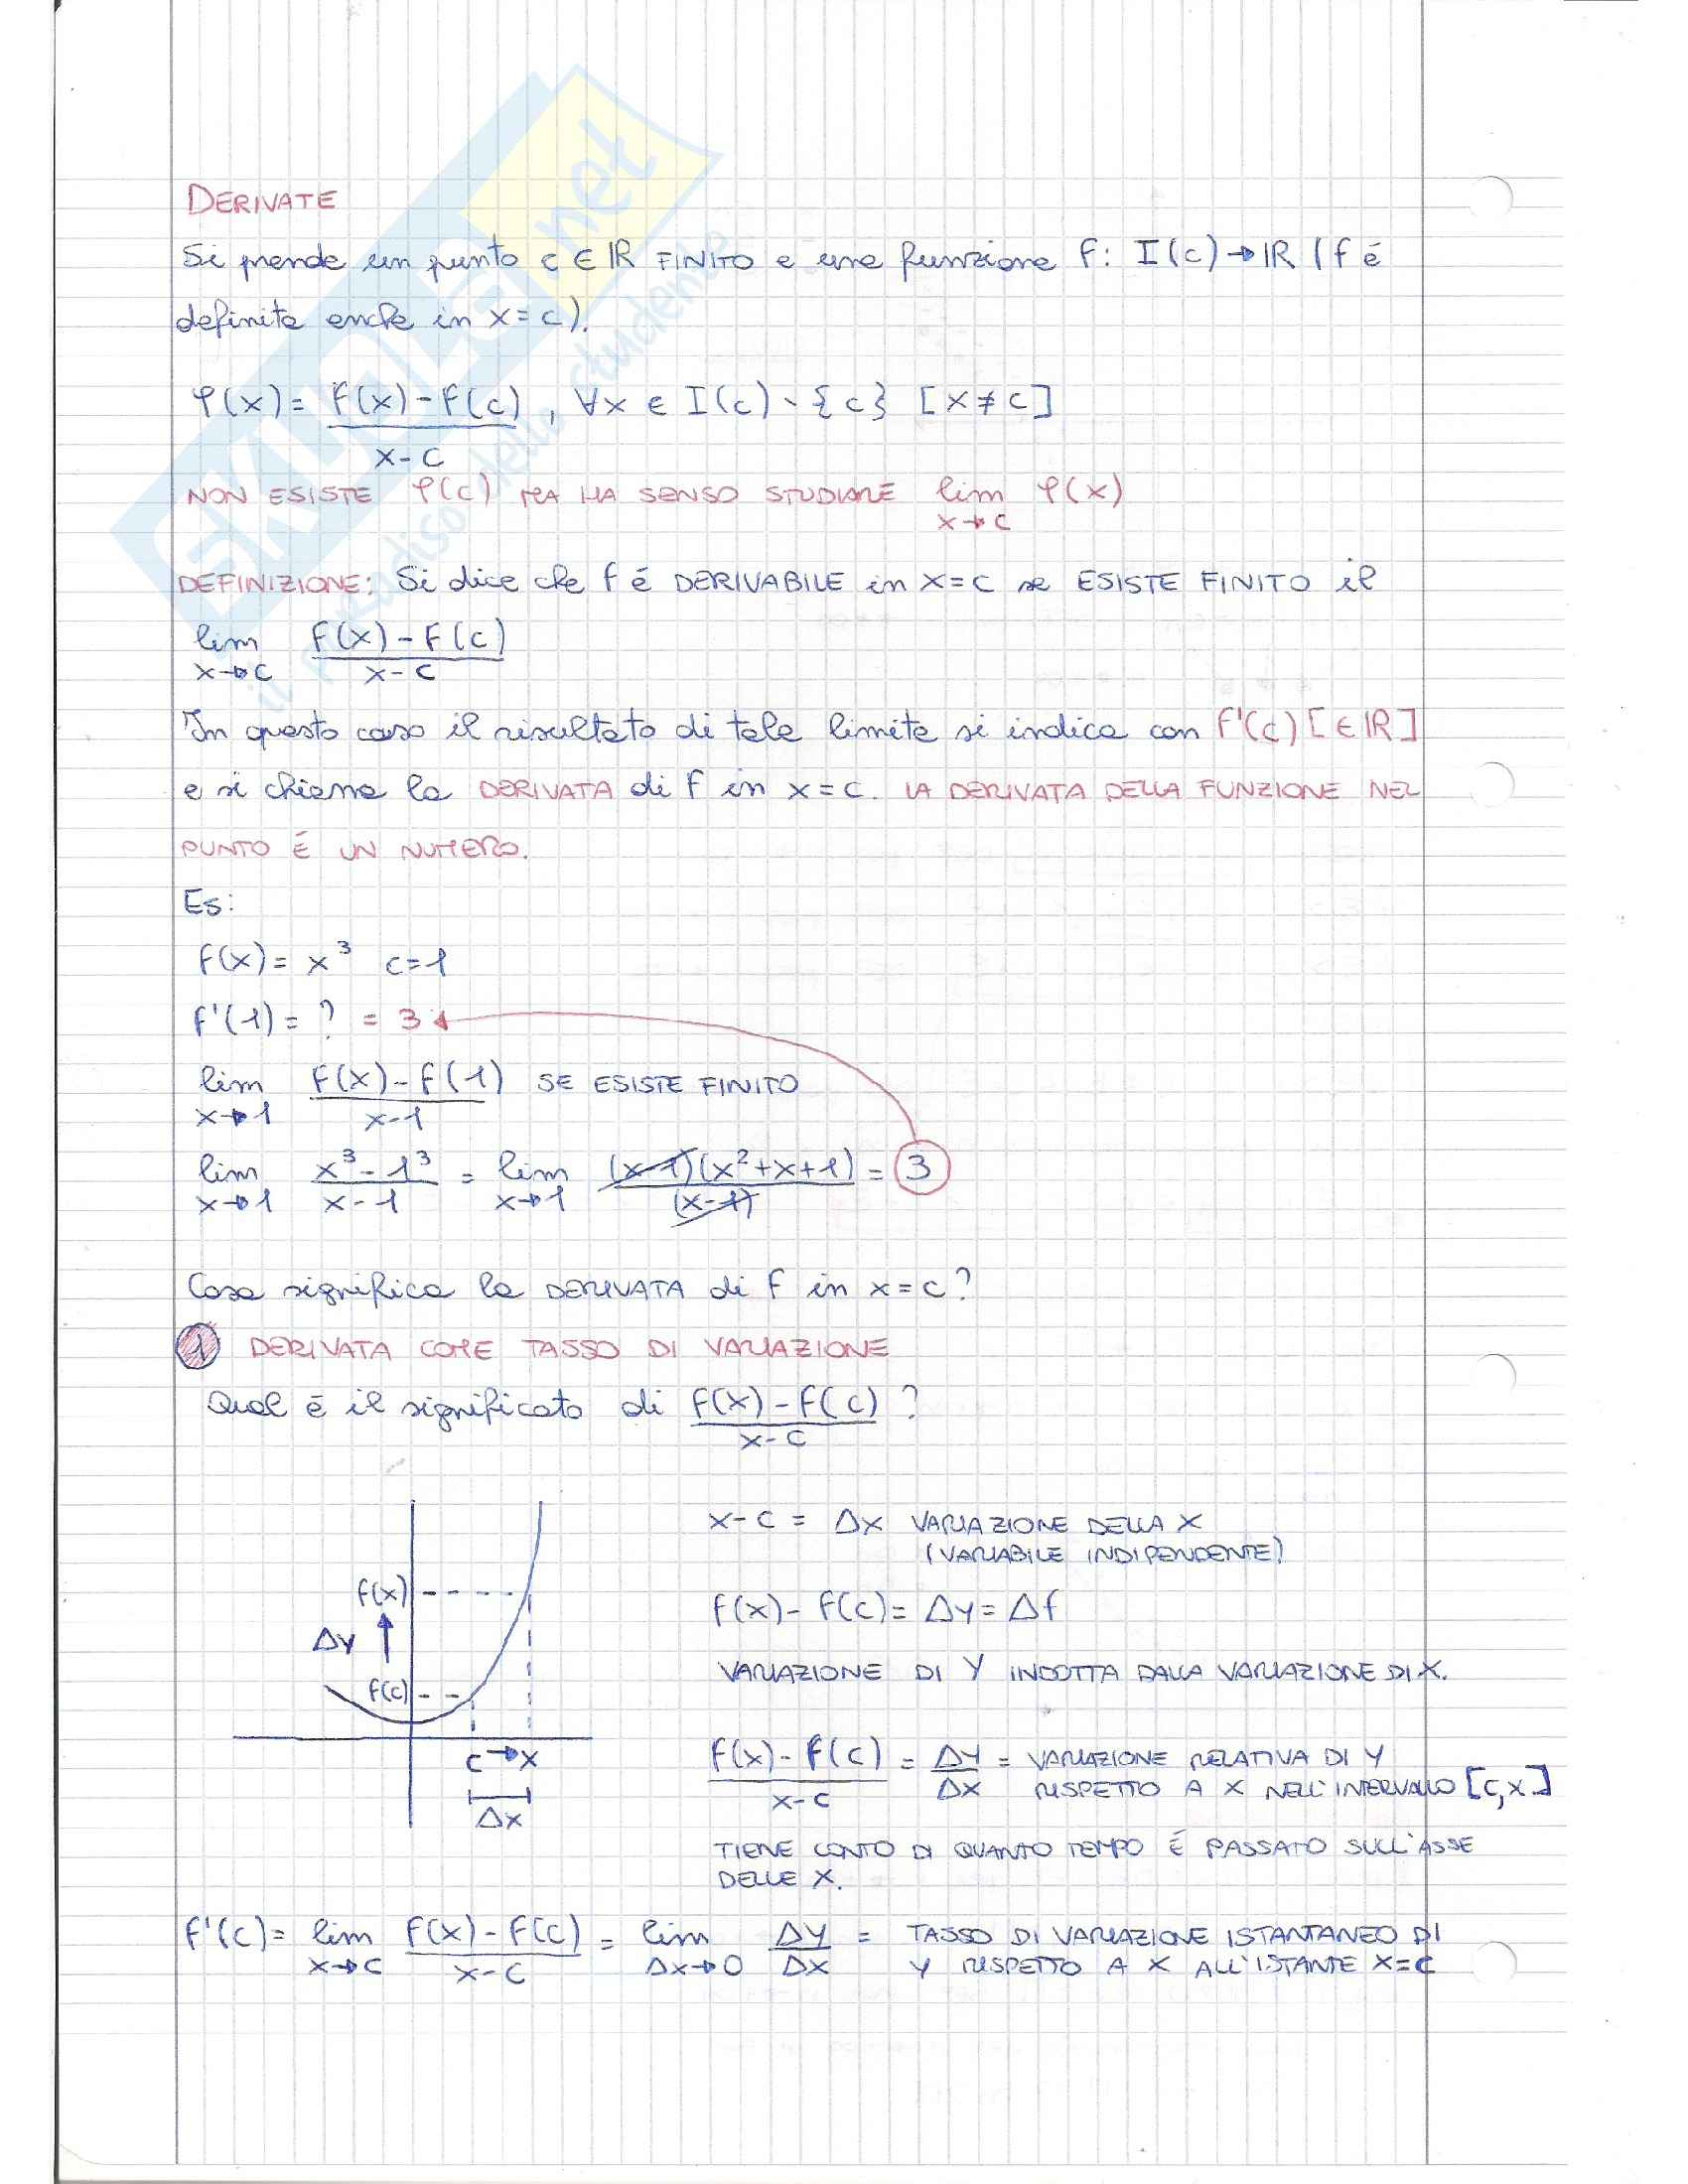 DERIVATE
Si prende un punto c ∈ ℝ FINITO e una funzione f: I(c)→ℝ (f é
definita anche in x=c).
φ(x) = f(x)-f(c) , ∀x ∈ I(c) \ {c} [x≠c]
x-c
NON ESISTE φ(c) MA HA SENSO STUDIARE lim φ(x)
x→c
DEFINIZIONE: Si dice che f é DERIVABILE in x=c se ESISTE FINITO il
lim f(x)-f(c)
x→c x-c
In questo caso il risultato di tale limite si indica con f'(c) [∈ℝ]
e si chiama la DERIVATA di f in x=c. LA DERIVATA DELLA FUNZIONE NEL
PUNTO É UN NUMERO.
Es:
f(x)= x³ c=1
f'(1)= ? = 3
lim f(x)-f(1) SE ESISTE FINITO
x→1 x-1
lim x³-1³ = lim (x-1)(x²+x+1) = 3
x→1 x-1 x→1 (x-1)
Cosa significa la DERIVATA di f in x=c?
1 DERIVATA COME TASSO DI VARIAZIONE
Qual è il significato di f(x)-f(c) ?
x-c
x-c = Δx VARIAZIONE DELLA X
(VARIABILE INDIPENDENTE)
f(x)
f(x)-f(c)= Δy = Δf
Δy
VARIAZIONE DI Y INDOTTA DALLA VARIAZIONE DI X.
f(c)
c→x
Δx
f(x)-f(c) = Δy = VARIAZIONE RELATIVA DI Y
x-c Δx RISPETTO A X NELL'INTERVALLO [c,x]
TIENE CONTO DI QUANTO TEMPO É PASSATO SULL'ASSE
DELLE X.
f'(c)= lim f(x)-f(c) = lim Δy = TASSO DI VARIAZIONE ISTANTANEO DI
x→c x-c Δx→0 Δx Y RISPETTO A X ALL'ISTANTE X=C
SKUOLA.net
il paradiso dello studente